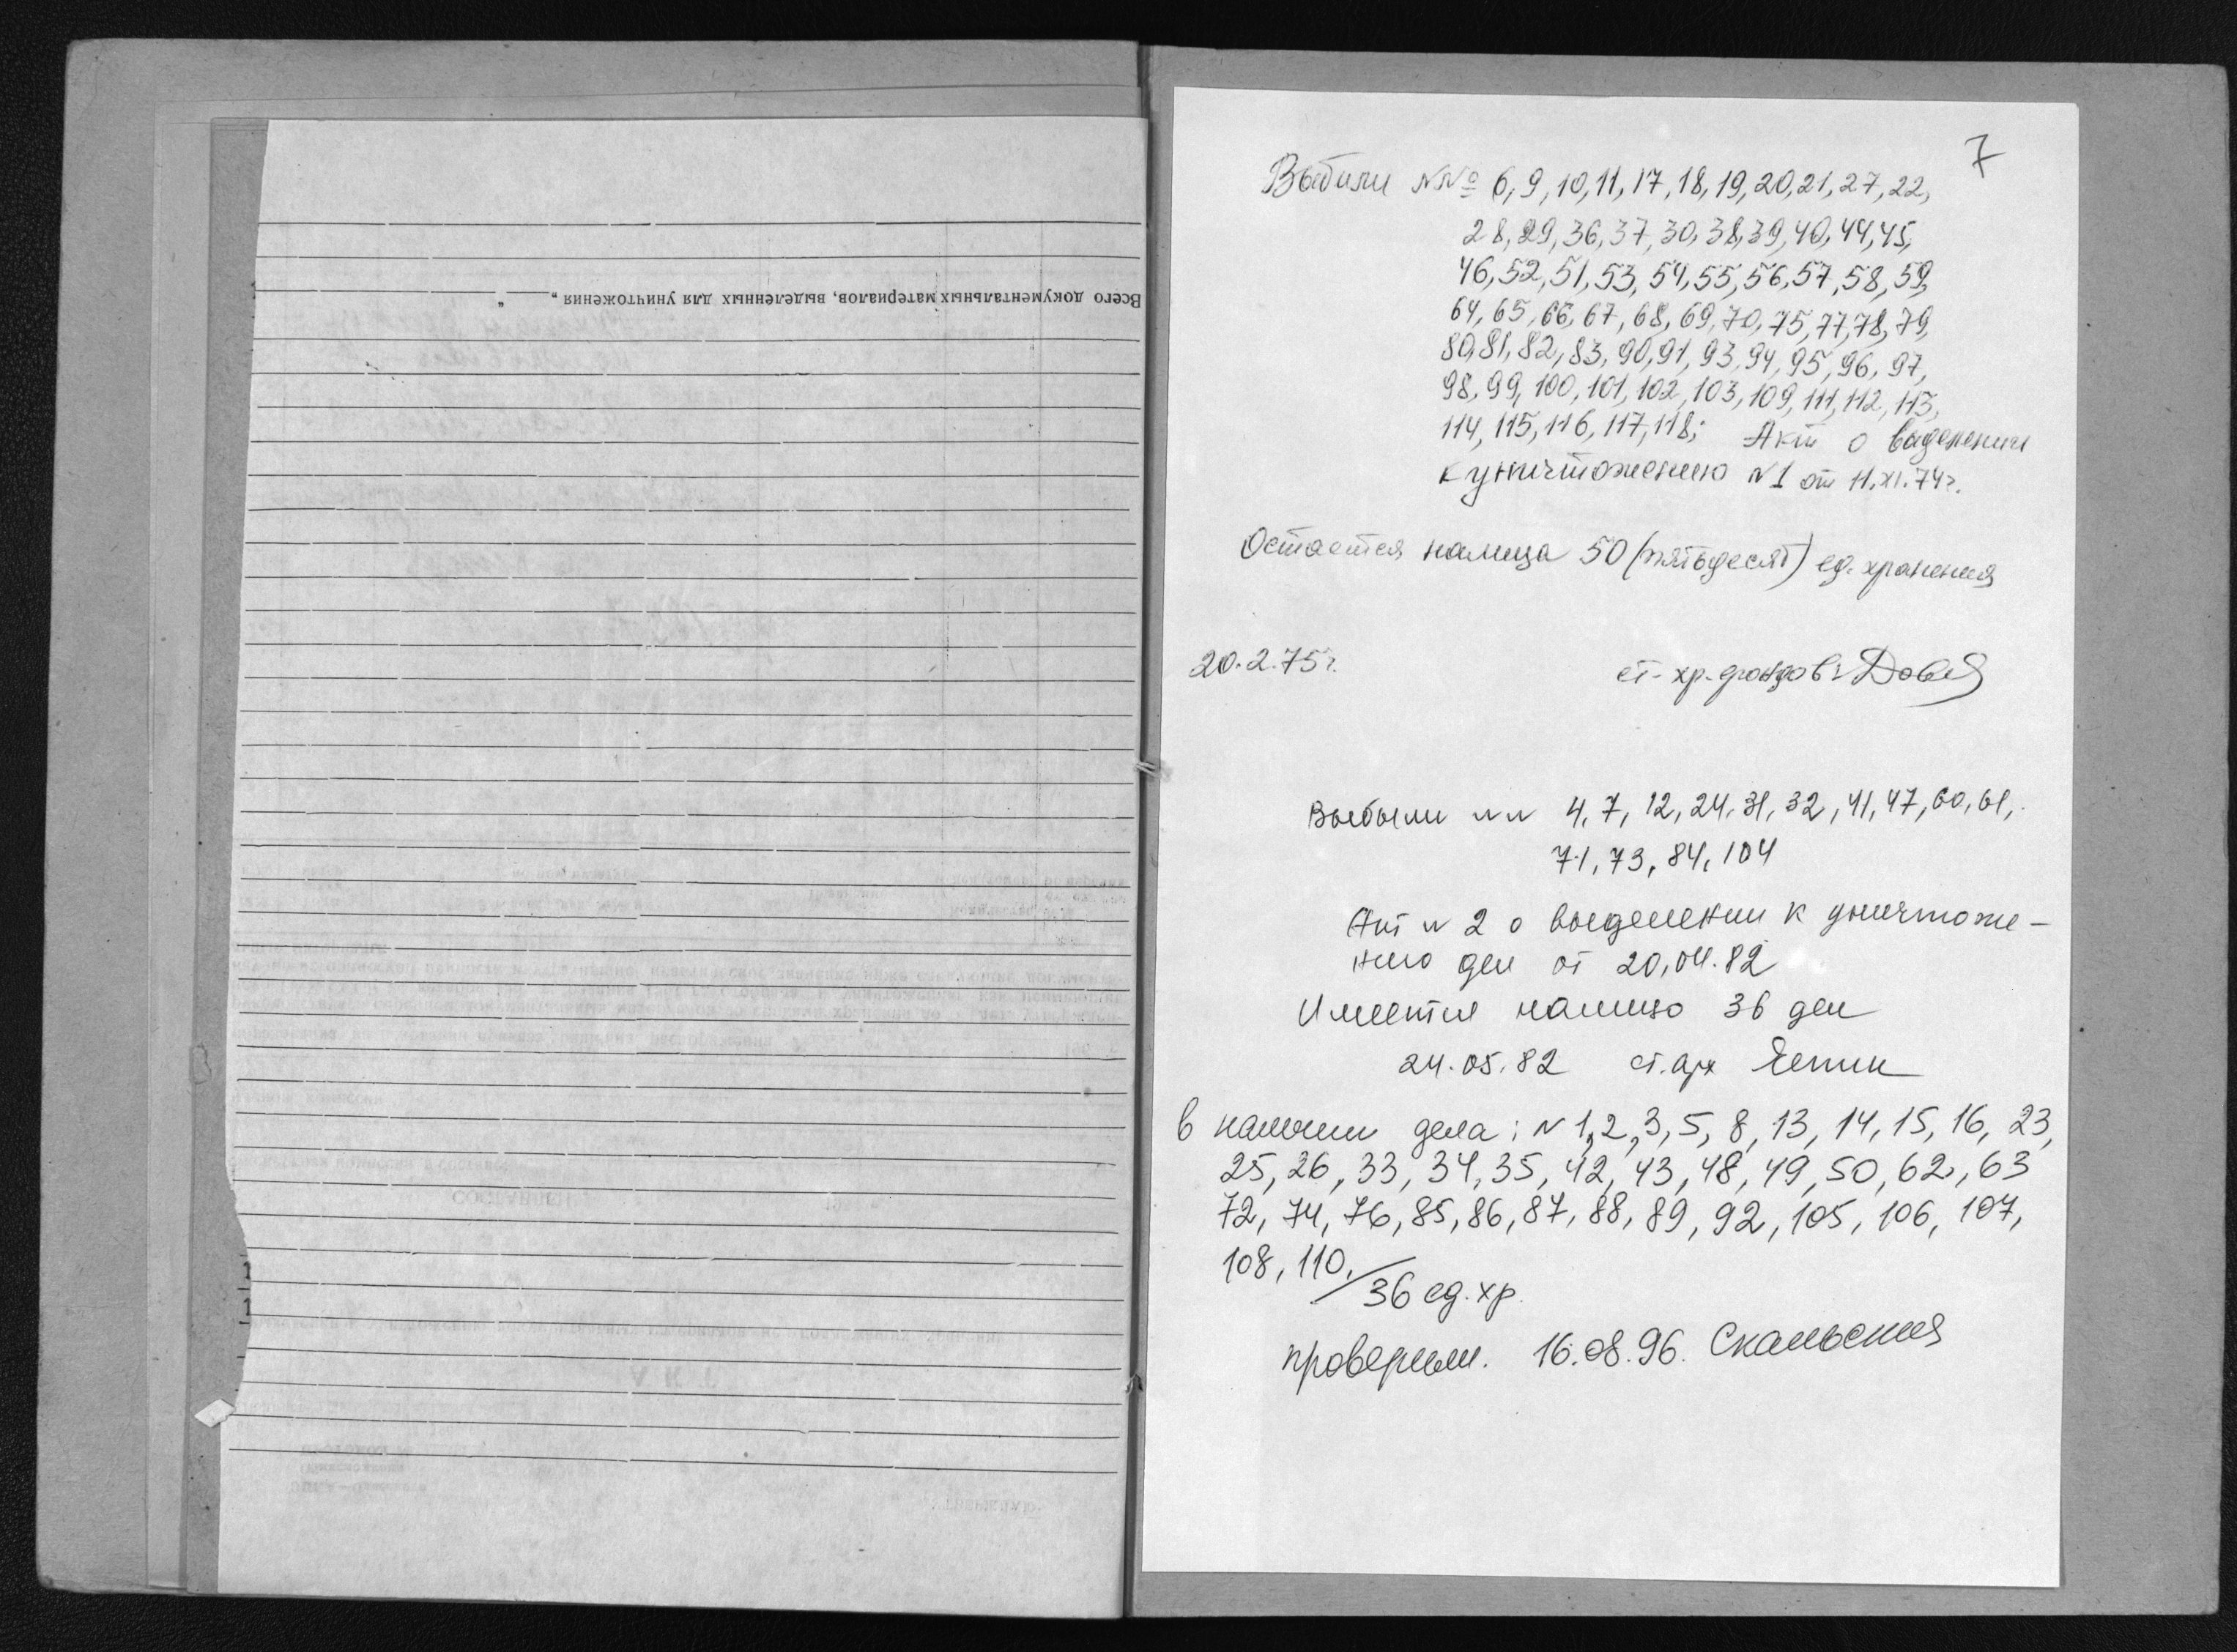 Всего документальных материалов, выделенных для уничтожения „ “
7
Выбыли №№ 6, 9, 10, 11, 17, 18, 19, 20, 21, 27, 22,
28, 29, 36, 37, 30, 38, 39, 40, 44, 45,
46, 52, 51, 53, 54, 55, 56, 57, 58, 59,
64, 65, 66, 67, 68, 69, 70, 75, 77, 78, 79,
80, 81, 82, 83, 90, 91, 93, 94, 95, 96, 97,
98, 99, 100, 101, 102, 103, 109, 111, 112, 113,
114, 115, 116, 117, 118; Акт о выделении
к уничтожению №1 от 11.XI.74г.
Остается налицо 50 (пятьдесят) ед. хранения
20.2.75г.
ст. хр. фондов
Выбыли NN 4, 7, 12, 24, 31, 32, 41, 47, 60, 61,
71, 73, 84, 104
Акт N 2 о выделении к уничтоже-
нию дел от 20.04.82
Имеется налицо 36 дел
24.05.82 ст. арх
в наличии дела: N 1, 2, 3, 5, 8, 13, 14, 15, 16, 23,
25, 26, 33, 34, 35, 42, 43, 48, 49, 50, 62, 63
72, 74, 76, 85, 86, 87, 88, 89, 92, 105, 106, 107,
108, 110.
36 ед. хр.
проверили. 16.08.96. Скальская